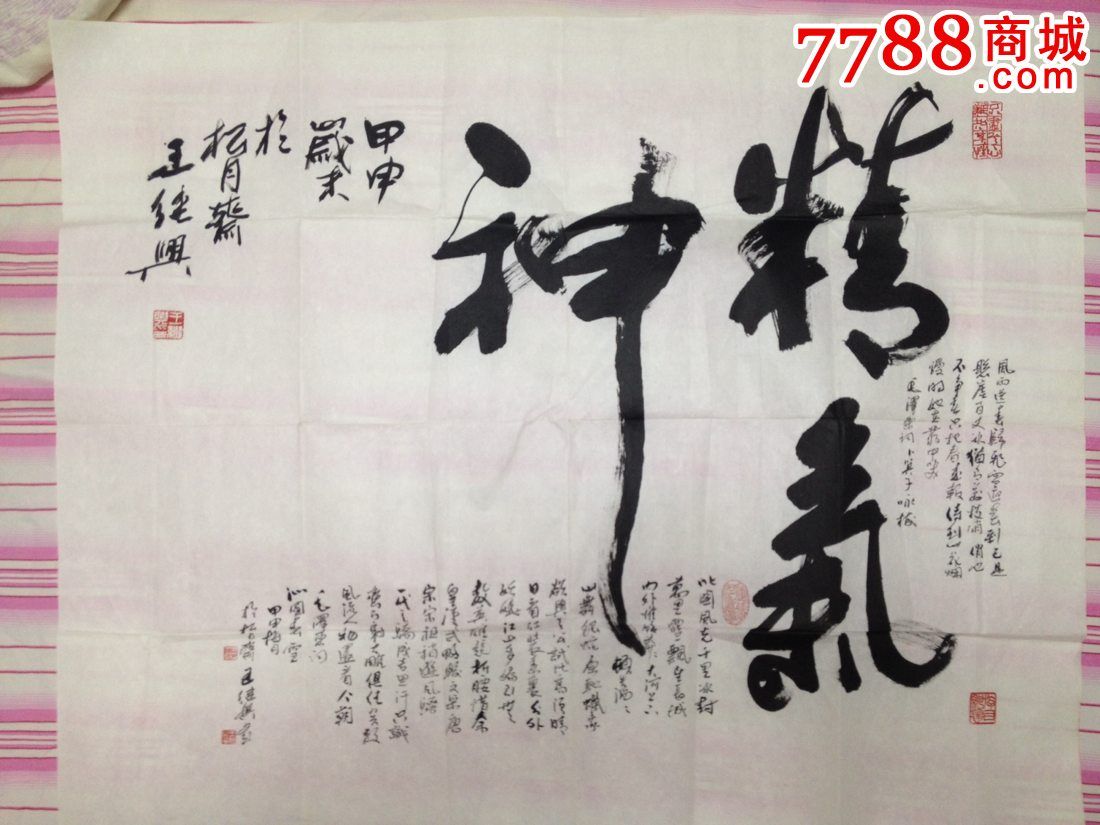 7788商城
.com
精氣
神
甲申
歲末
於
松月齋
王继興
風雨送春歸飛雪迎春到已是
懸崖百丈冰猶有花枝俏俏也
不争春只把春来報待到山花爛
漫時她在叢中笑
毛澤東词卜算子咏梅
北國風光千里冰封
萬里雪飄望長城
内外惟餘莽莽大河上下
頓失滔滔
山舞銀蛇原馳蠟象
欲與天公試比高須晴
日看红装素裹分外
妖娆江山多嬌引無
數英雄競折腰惜秦
皇漢武略輸文采唐
宗宋祖稍遜風騷
一代天驕成吉思汗只識
彎弓射大雕俱往矣數
風流人物還看今朝
毛澤東词
沁園春雪
甲申
於松月齋王继興